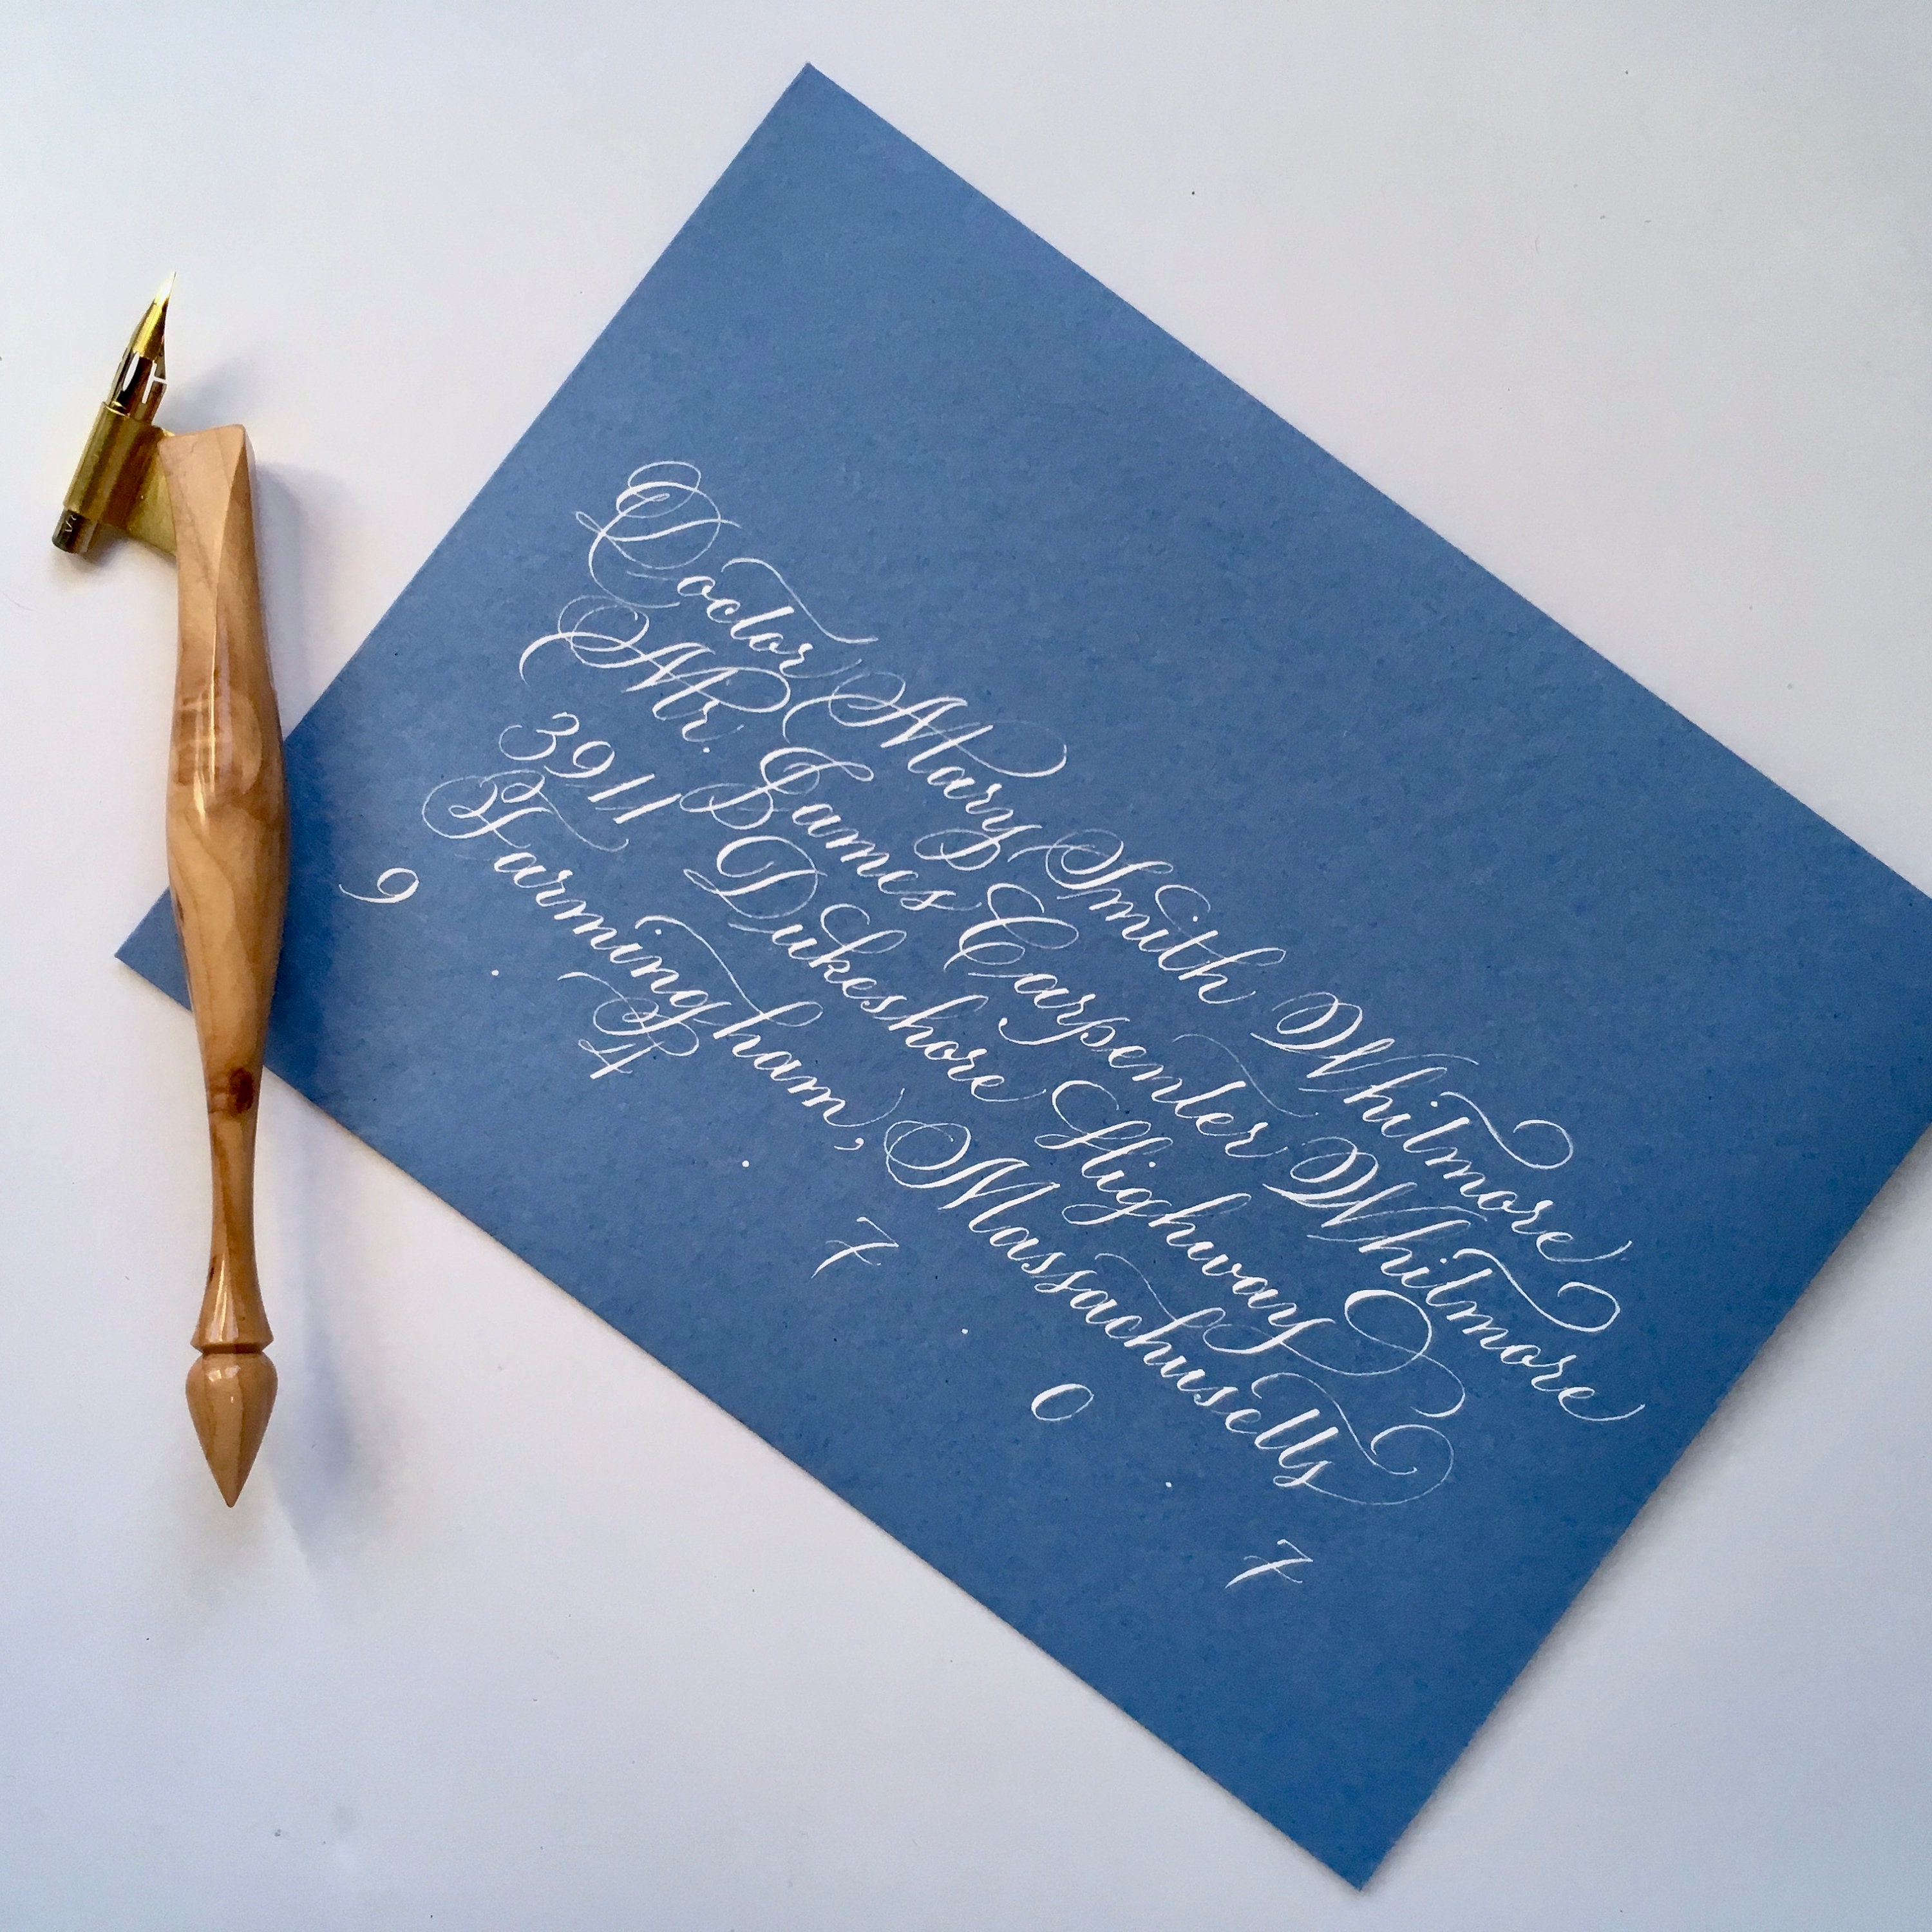 Doctor Mary Smith Whitmore
Mr. James Carpenter Whitmore
3911 Dukeshore Highway
Farmingham, Massachusetts
9 · 4 · 7 · 0 · 7